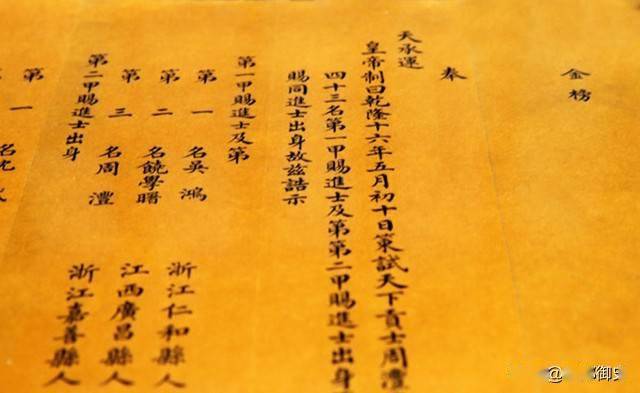 金榜
奉
天承運
皇帝制曰乾隆十六年五月初十日策試天下貢士周澧
四十三名第一甲賜進士及第第二甲賜進士出身
賜同進士出身故茲誥示
第一甲賜進士及第
第一名吳鴻 浙江仁和縣人
第二名饒學曙 江西廣昌縣人
第三名周澧 浙江嘉善縣人
第二甲賜進士出身
第一名
@ 御